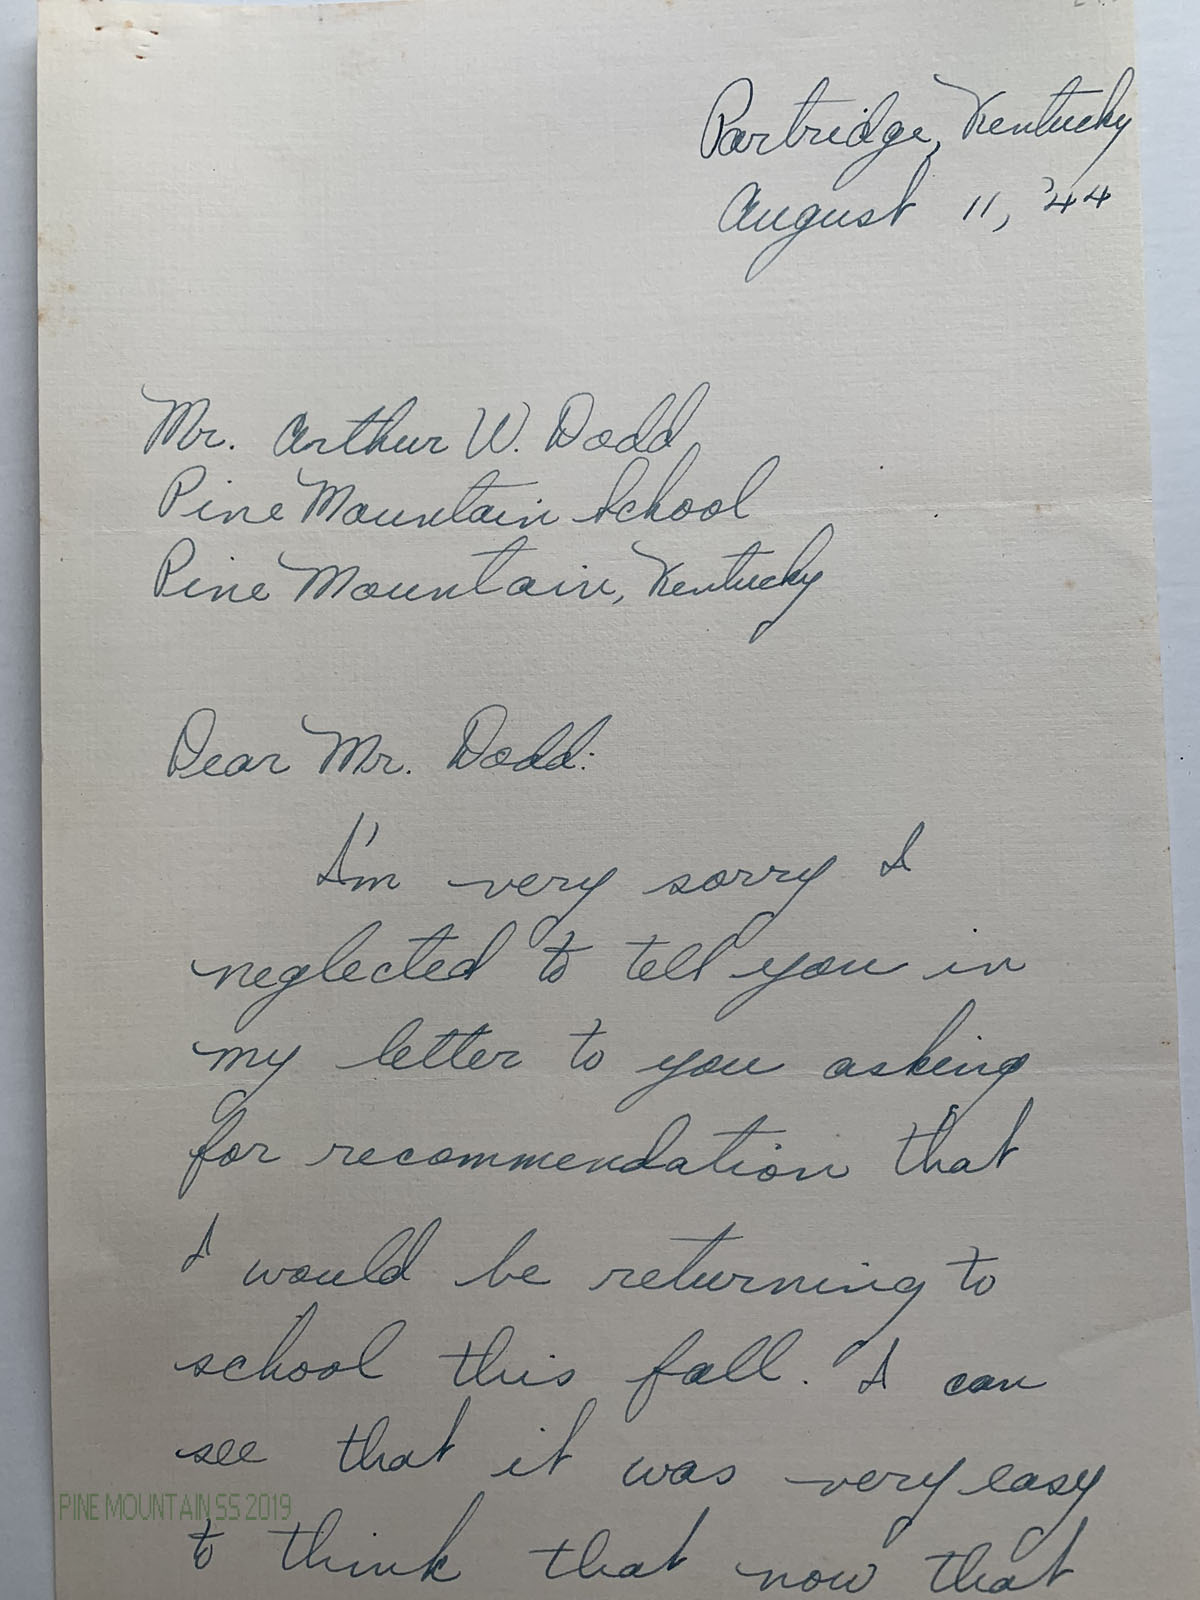 Partridge, Kentucky
August 11, '44
Mr. Arthur W. Dodd
Pine Mountain School
Pine Mountain, Kentucky
Dear Mr. Dodd:
I'm very sorry I
neglected to tell you in
my letter to you asking
for recommendation that
I would be returning to
school this fall. I can
see that it was very easy
PINE MOUNTAIN SS 2019
to think that now that